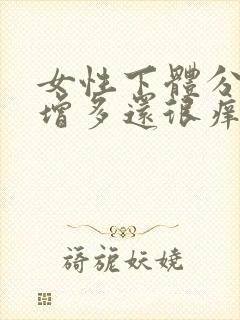 女性下體分
增多還很痒
旖旎妖嬈